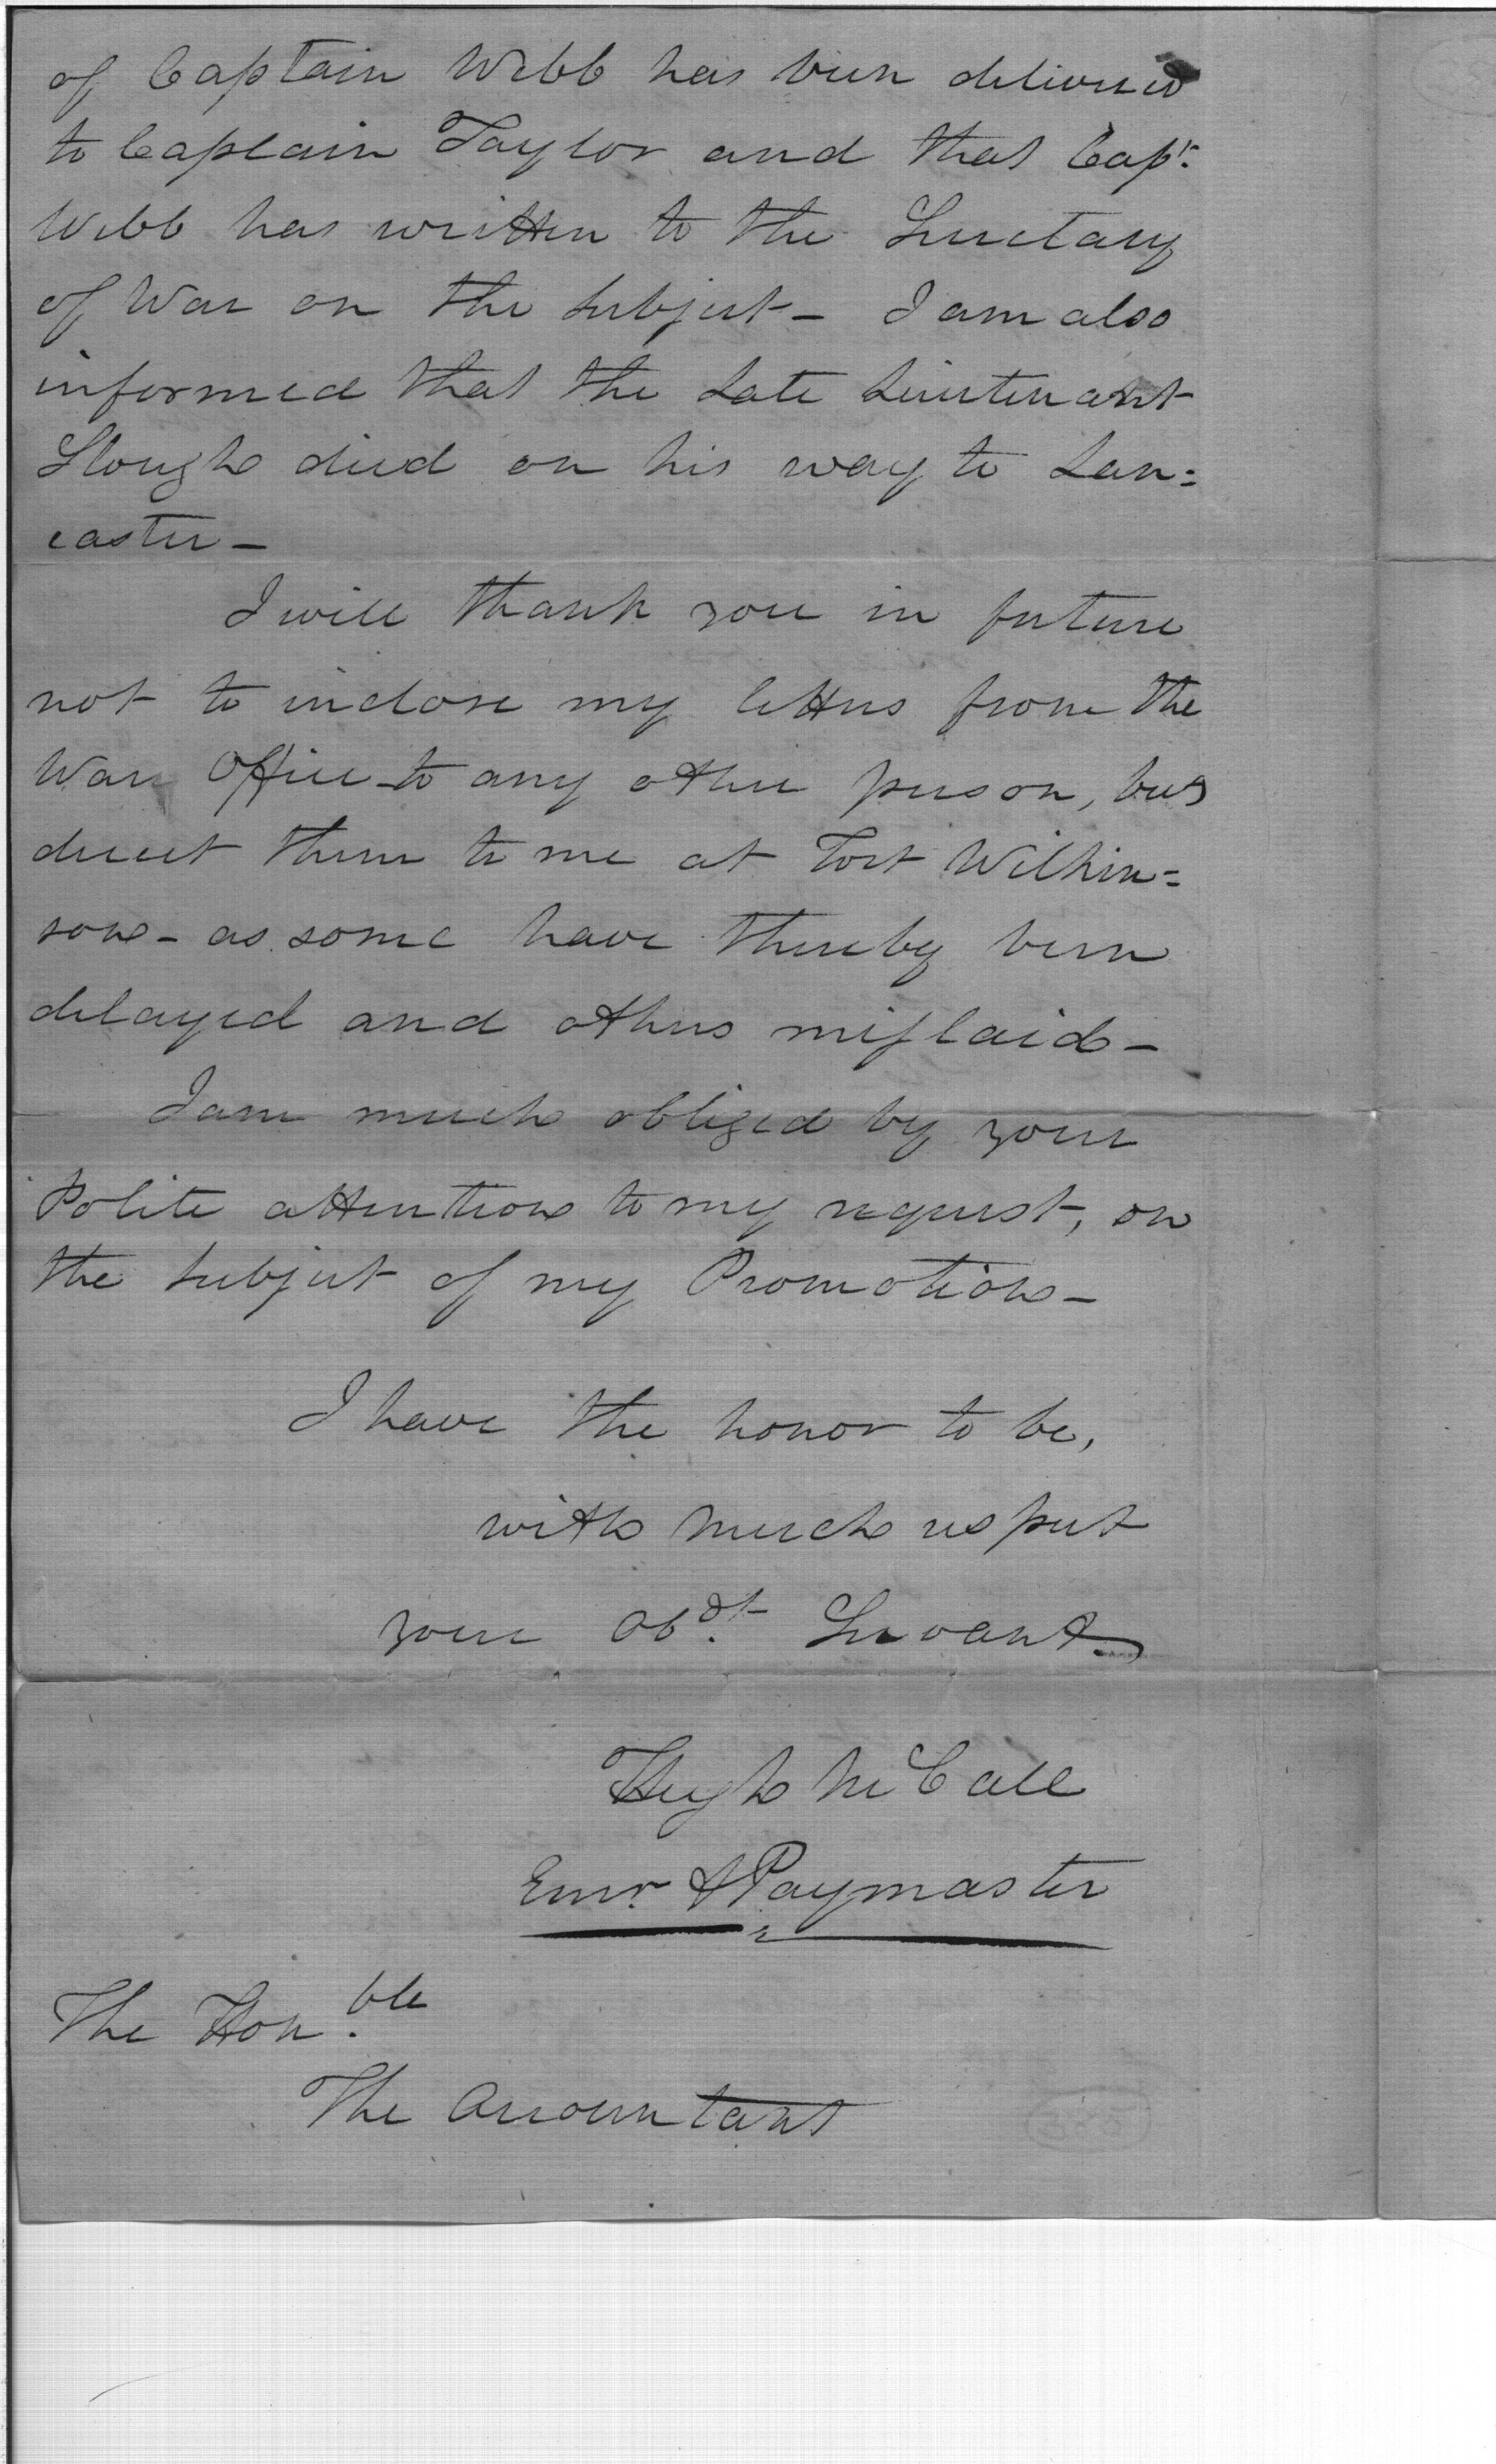 of Captain Webb has been delivered
to Captain Taylor and that Capt.
Webb has written to the Secretary
of War on the subject - I am also
informed that the Late Lieutenant
Slough died on his way to Lan=
caster -
I will thank you in future
not to inclose my letters from the
War Office to any other person, but
direct them to me at Fort Wilkin=
son - as some have thereby been
delayed and others misslaid -
I am much obliged by your
Polite attention to my request, on
the subject of my Promotion -
I have the honor to be,
with much respect
your Obdt. Servant
Hugh McCall
&Paymaster
The Honble.
The Accountant